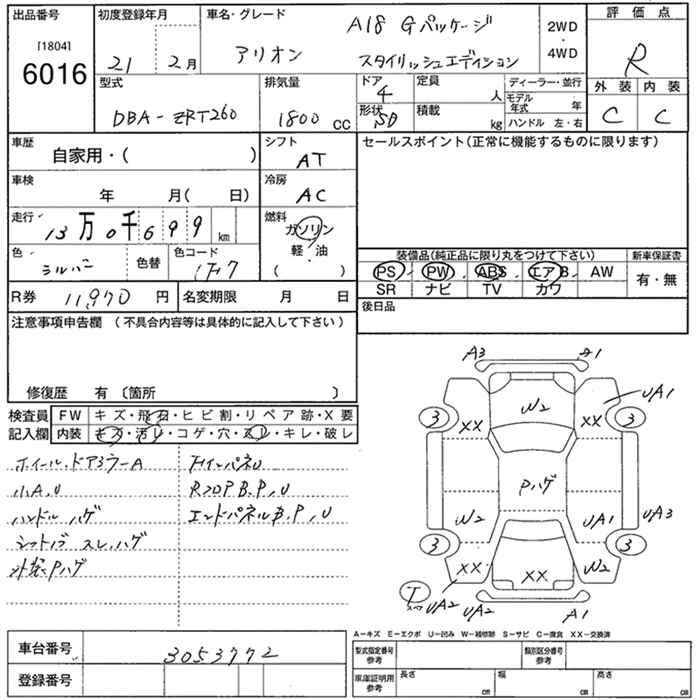 出品番号
[1804]
6016
初度登録年月
21 2月
車名・グレード
アリオン
A18 Gパッケージ
スタイリッシュエディション
2WD
・
4WD
評価点
R
型式
DBA-ZRT260
排気量
1800 CC
ドア
4
形状
SD
定員
人
積載
kg
ディーラー・並行
モデル年式 年
ハンドル 左・右
外装 内装
C C
車歴
自家用・( )
シフト
AT
車検
年 月( 日)
冷房
AC
走行
13万0千699 km
燃料
ガソリン
軽・油
( )
色
シルバー
色替
色コード
1F7
R券 11,970 円
名変期限 月 日
セールスポイント(正常に機能するものに限ります)
装備品(純正品に限り丸をつけて下さい)
PS PW ABS エアB AW
SR ナビ TV カワ
新車保証書
有・無
後日品
注意事項申告欄 (不具合内容等は具体的に記入して下さい)
修復歴 有 〔箇所 〕
検査員記入欄
FW キズ・飛石・ヒビ割・リペア跡・X要
内装 キズ・汚レ・コゲ・穴・スレ・キレ・破レ
ホイール、ドアミラーA
小A、U
ハンドル ハゲ
シフトノブ スレ、ハゲ
外装Pハゲ
RフロアP B、P、U
エンドパネルB、P、U
A3
A1
UA1
W2
XX
XX
3
3
Pハゲ
W2
UA1
UA3
3
3
XX
XX
W2
T
UA2
UA2
A1
A－キズ E－エクボ U－凹み W－補修跡 S－サビ C－腐食 XX－交換済
車台番号 3053772
登録番号
型式指定番号
参考
類別区分番号
参考
車庫証明用
参考
長さ cm
幅 cm
高さ cm